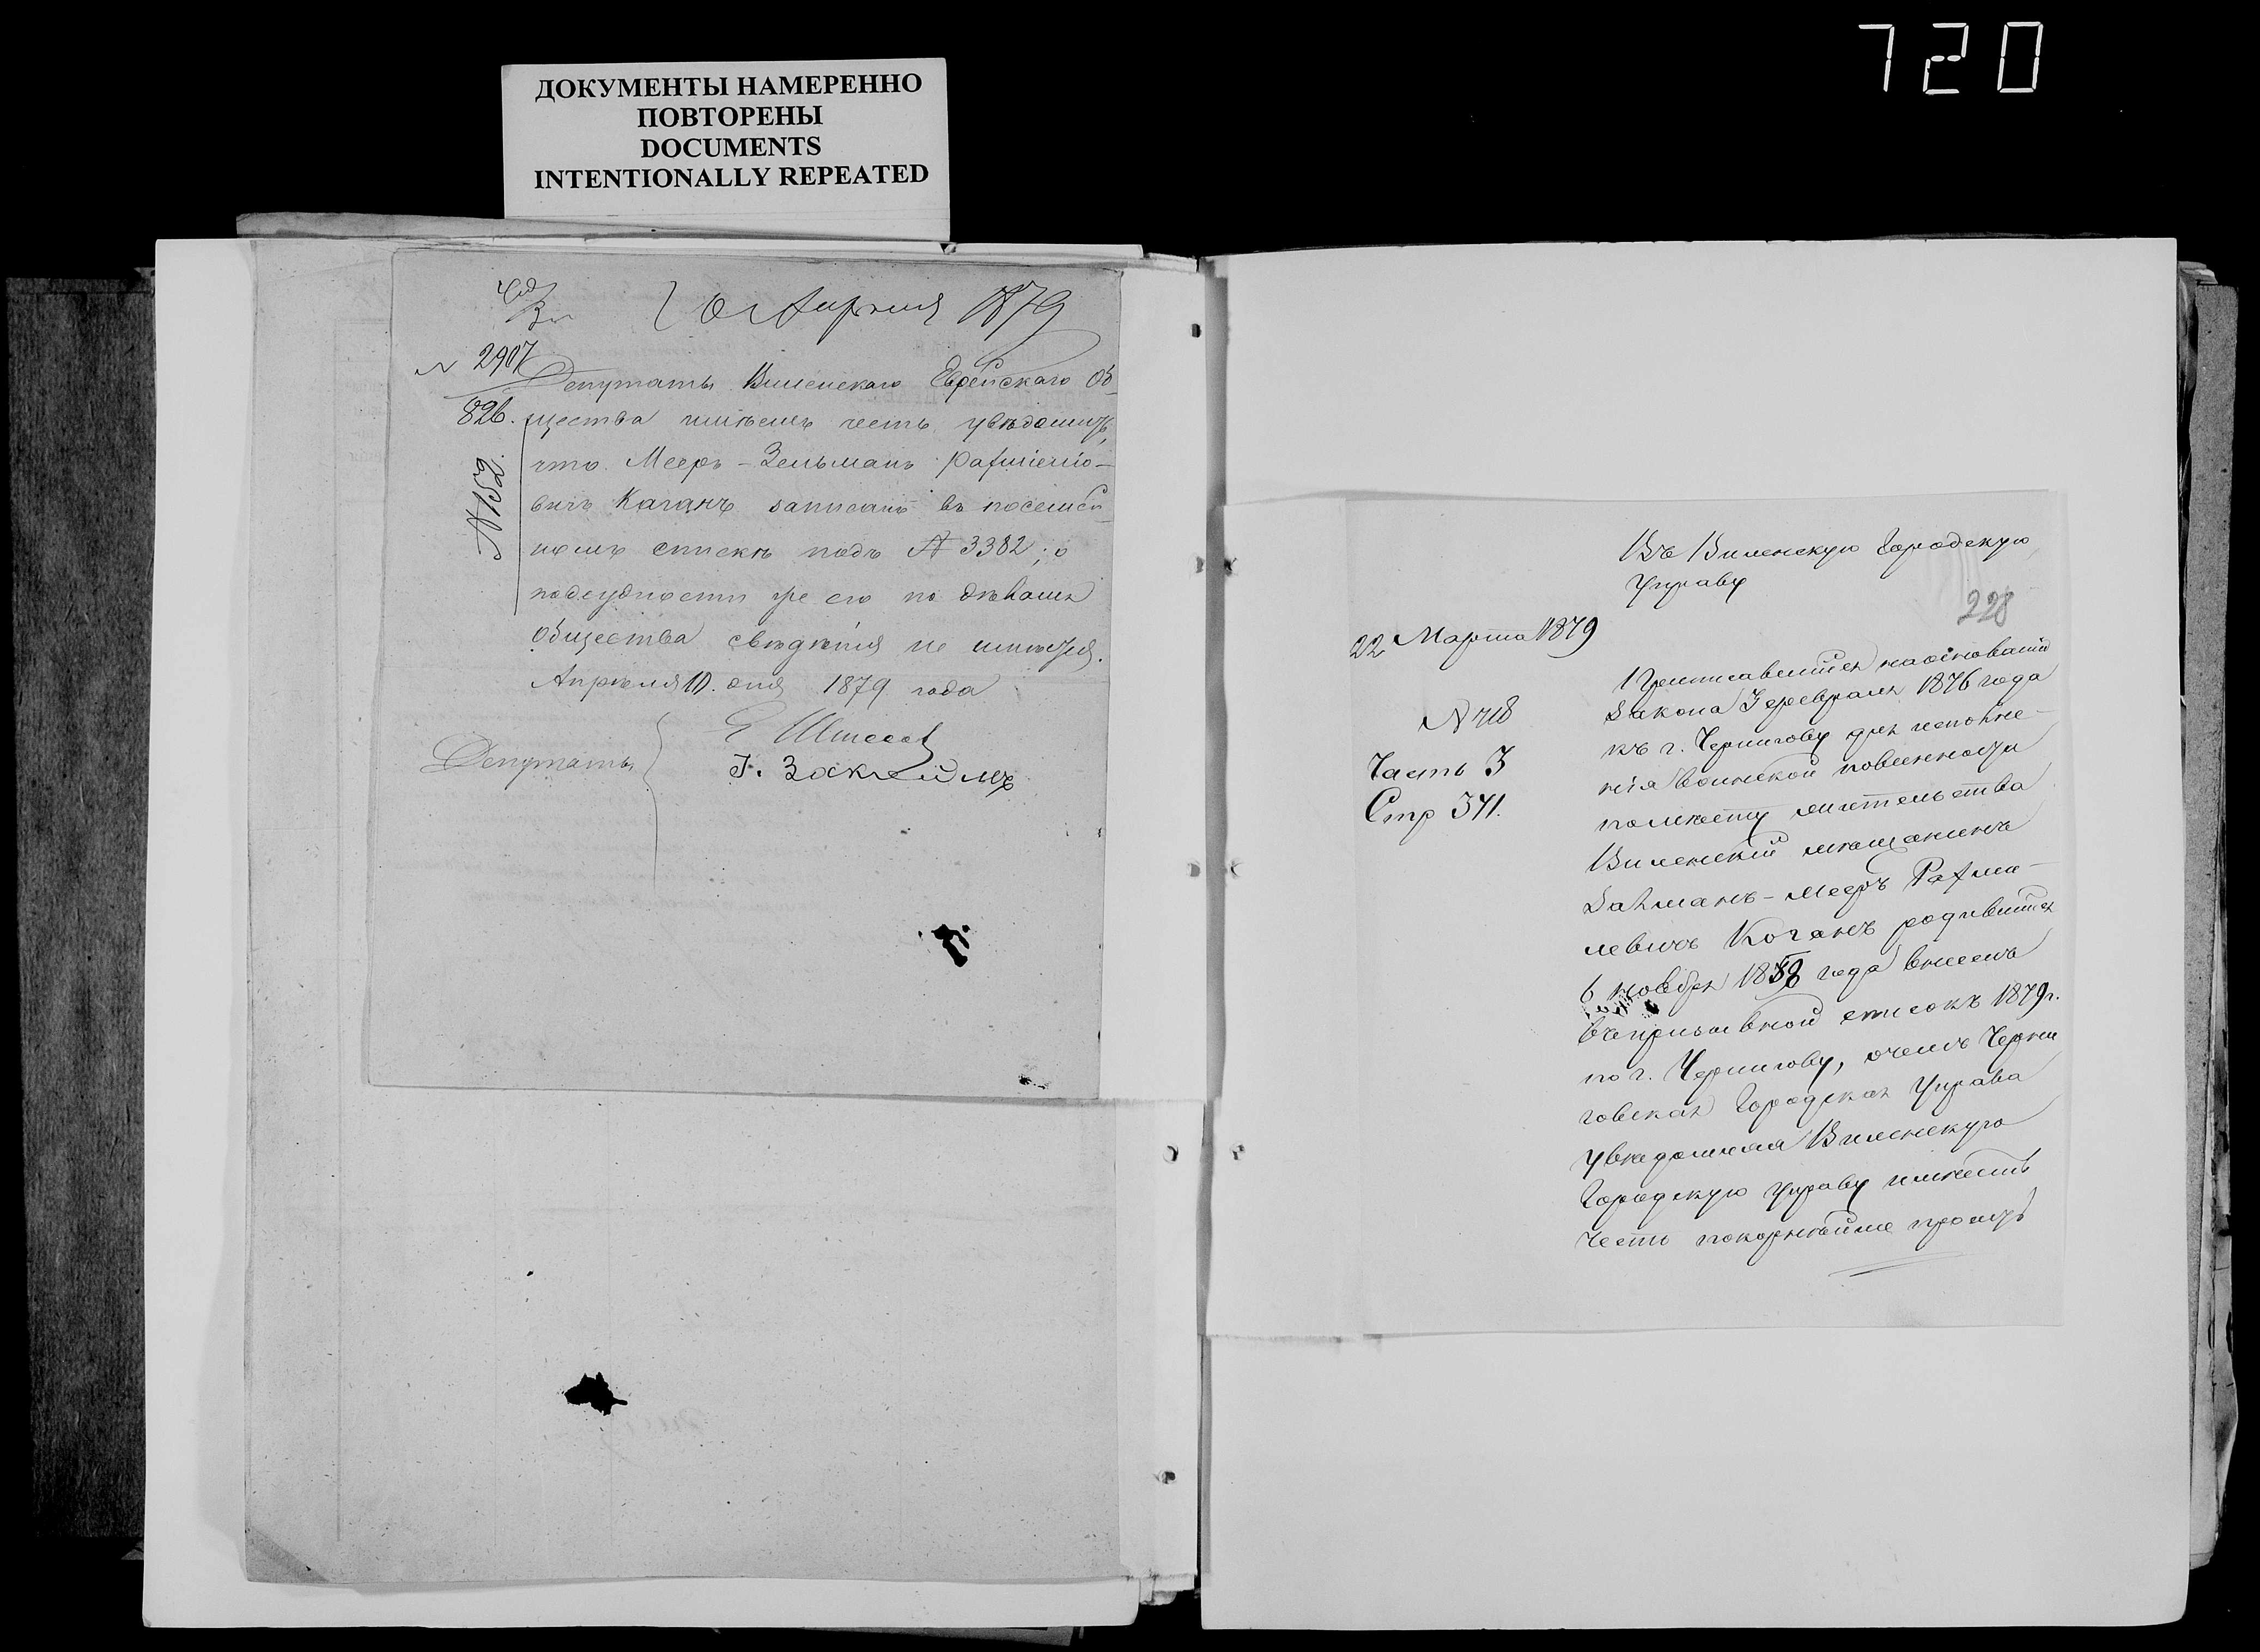 720
ДОКУМЕНТЫ НАМЕРЕННО
ПОВТОРЕНЫ
DOCUMENTS
INTENTIONALLY REPEATED
10 Апрѣля 1879
№ 2907
826.
№ 152.
Депутаты Виленскаго Еврейскаго Об-
щества имѣемъ честь увѣдомить,
что Мееръ-Зельманъ Рахмiелiо-
вичъ Каганъ записанъ въ посемей-
номъ спискѣ подъ № 3382; о
подсудности же его по дѣламъ
общества свѣдѣнiя не имѣется.
Апрѣля 10 дня 1879 года
Депутаты
Въ Виленскую Городскую
Управу
228
22 Марта 1879
№ 718
Часть 3
Стр 341.
Приписавшiйся на основанiи
Закона 3 февраля 1876 года
къ г. Чернигову для исполне-
нiя воинской повинности
по мѣсту жительства
Виленскiй мѣщанинъ
Залманъ-Мееръ Рахми-
левичъ Коганъ родившiйся
6 ноября 1858 года внесенъ
въ призывной списокъ 1879 г.
по г. Чернигову, о чемъ Черни
говская Городская Управа
увѣдомляя Виленскую
Городскую Управу имѣетъ
честь покорнѣйше просить